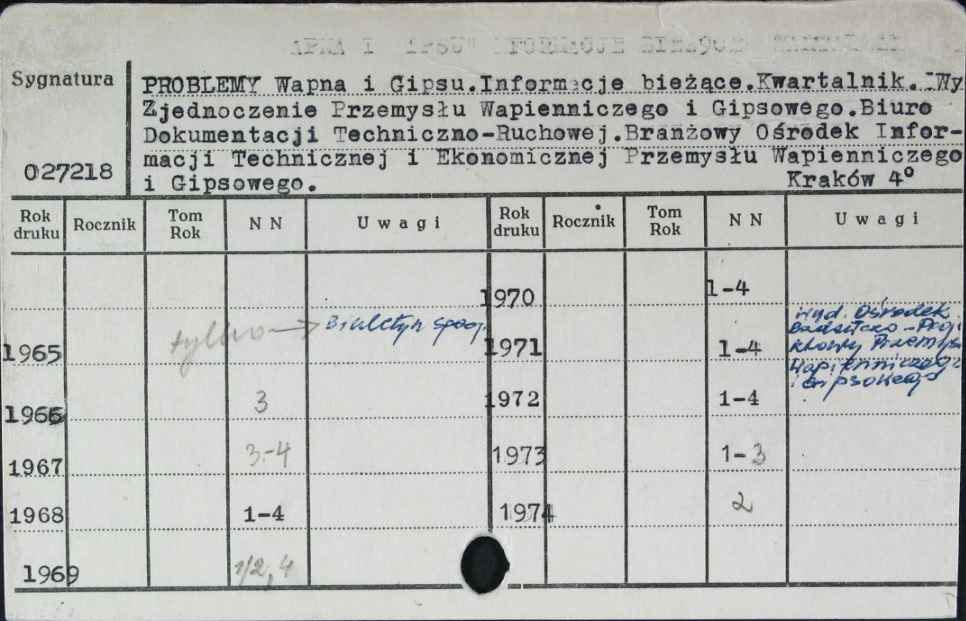 Sygnatura
027218
PROBLEMY Wapna i Gipsu. Informacje bieżące. Kwartalnik. Wy
Zjednoczenie Przemysłu Wapienniczego i Gipsowego. Biuro
Dokumentacji Techniczno-Ruchowej. Branżowy Ośrodek Infor-
macji Technicznej i Ekonomicznej Przemysłu Wapienniczego
i Gipsowego. Kraków 4°
Rok druku Rocznik Tom Rok NN Uwagi Rok druku Rocznik Tom Rok NN Uwagi
1970 1-4
1965 tylko → 1971 1-4 Wyd. Ośrodek
Przemysłu
Wapienniczego
i Gipsowego
1966 3 1972 1-4
1967 3-4 1973 1-3
1968 1-4 1974 2
1969 1/2, 4